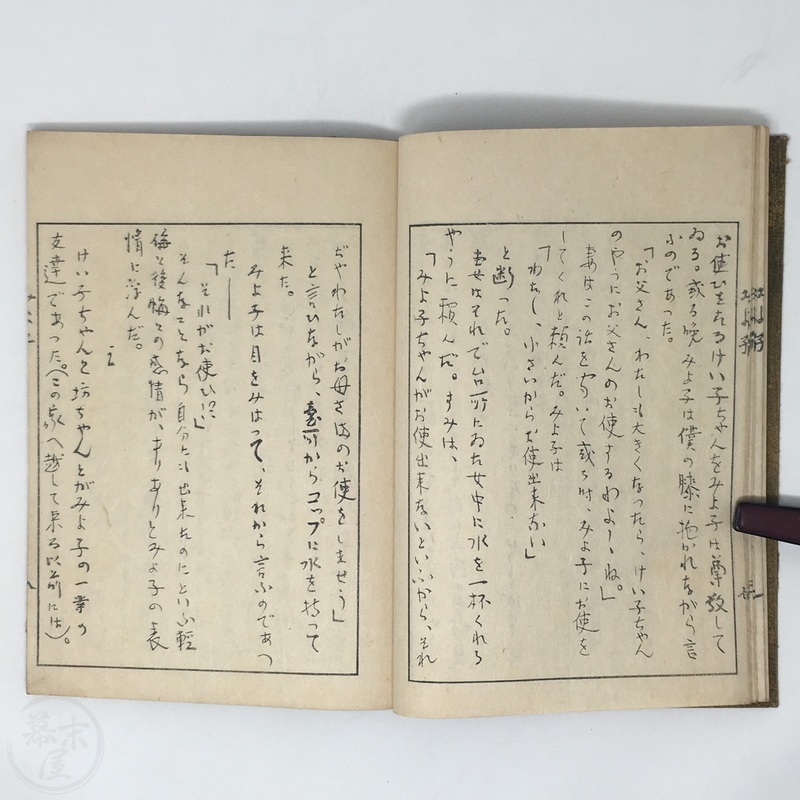 お使ひをするけい子ちゃんをみよ子は尊敬して
ゐる。或る晩みよ子は僕の膝に抱かれながら言
ふのであった。
「お父さん、わたしも大きくなつたら、けい子ちゃん
のやうにお父さんのお使するわよー、ね。」
妻はこの話を聞いて或る時、みよ子にお使を
してくれと頼んだ。みよ子は
「わたし、小さいからお使出来ない」
と断った。
妻はそれで台所にゐた女中に水を一杯くれる
やうに頼んだ。すみは、
「みよ子ちゃんがお使出来ないといふから、それ
ぢやわたしがお母さまのお使をしませう」
と言ひながら、臺所からコップに水を持って
来た。
みよ子は目をみはって、それから言ふのであつ
た――
「それがお使ひ!?」
そんなことなら自分にも出来たのにといふ軽
侮と後悔との感情が、ありありとみよ子の表
情に浮んだ。
けい子ちゃんと坊ちゃんとがみよ子の一等の
友達であった。(この家へ越して来る以前には)。
幕末屋